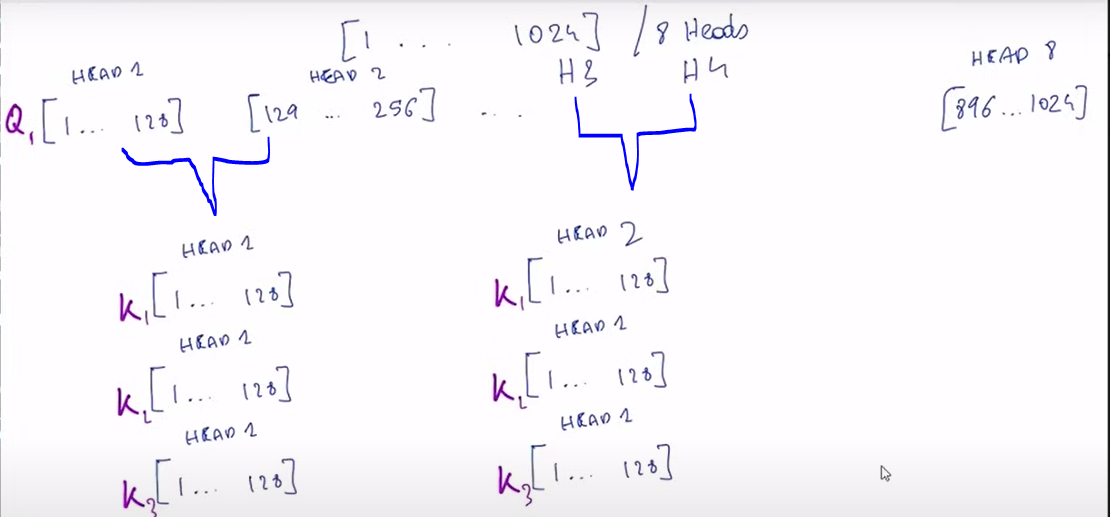 [1 . . . 1024] / 8 Heads
HEAD 1 HEAD 2 H3 H4 HEAD 8
Q1 [1... 128] [129 ... 256] ... [896...1024]
HEAD 1 HEAD 2
K1 [1... 128] K1 [1... 128]
HEAD 1 HEAD 1
K2 [1... 128] K2 [1... 128]
HEAD 1 HEAD 1
K3 [1... 128] K3 [1... 128]